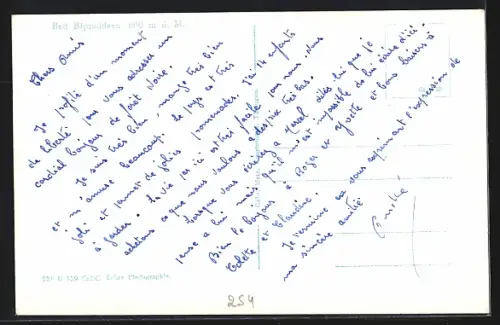 Bad Rippoldsau 600 m ü. M.
Chers Amis
Je profite d'un moment
de liberté pour vous adresser un
cordial bonjour de forêt Noire.
Je suis très bien, mange très bien
et m'amuse beaucoup. Le pays est très
joli et permet de jolies promenades. J'ai enfants
à garder. La vie par ici est très facile pour nous. Nous
achetons ce que nous voulons à des prix très bas.
Lorsque vous écrirez à Marcel dites lui que je
pense à lui mais qu'il m'est impossible de lui écrire d'ici.
Bien le bonjour à Roger et Yvette et bons baisers à
Colette et Claudine.
Je termine en vous exprimant l'expression de
ma sincère amitié
254